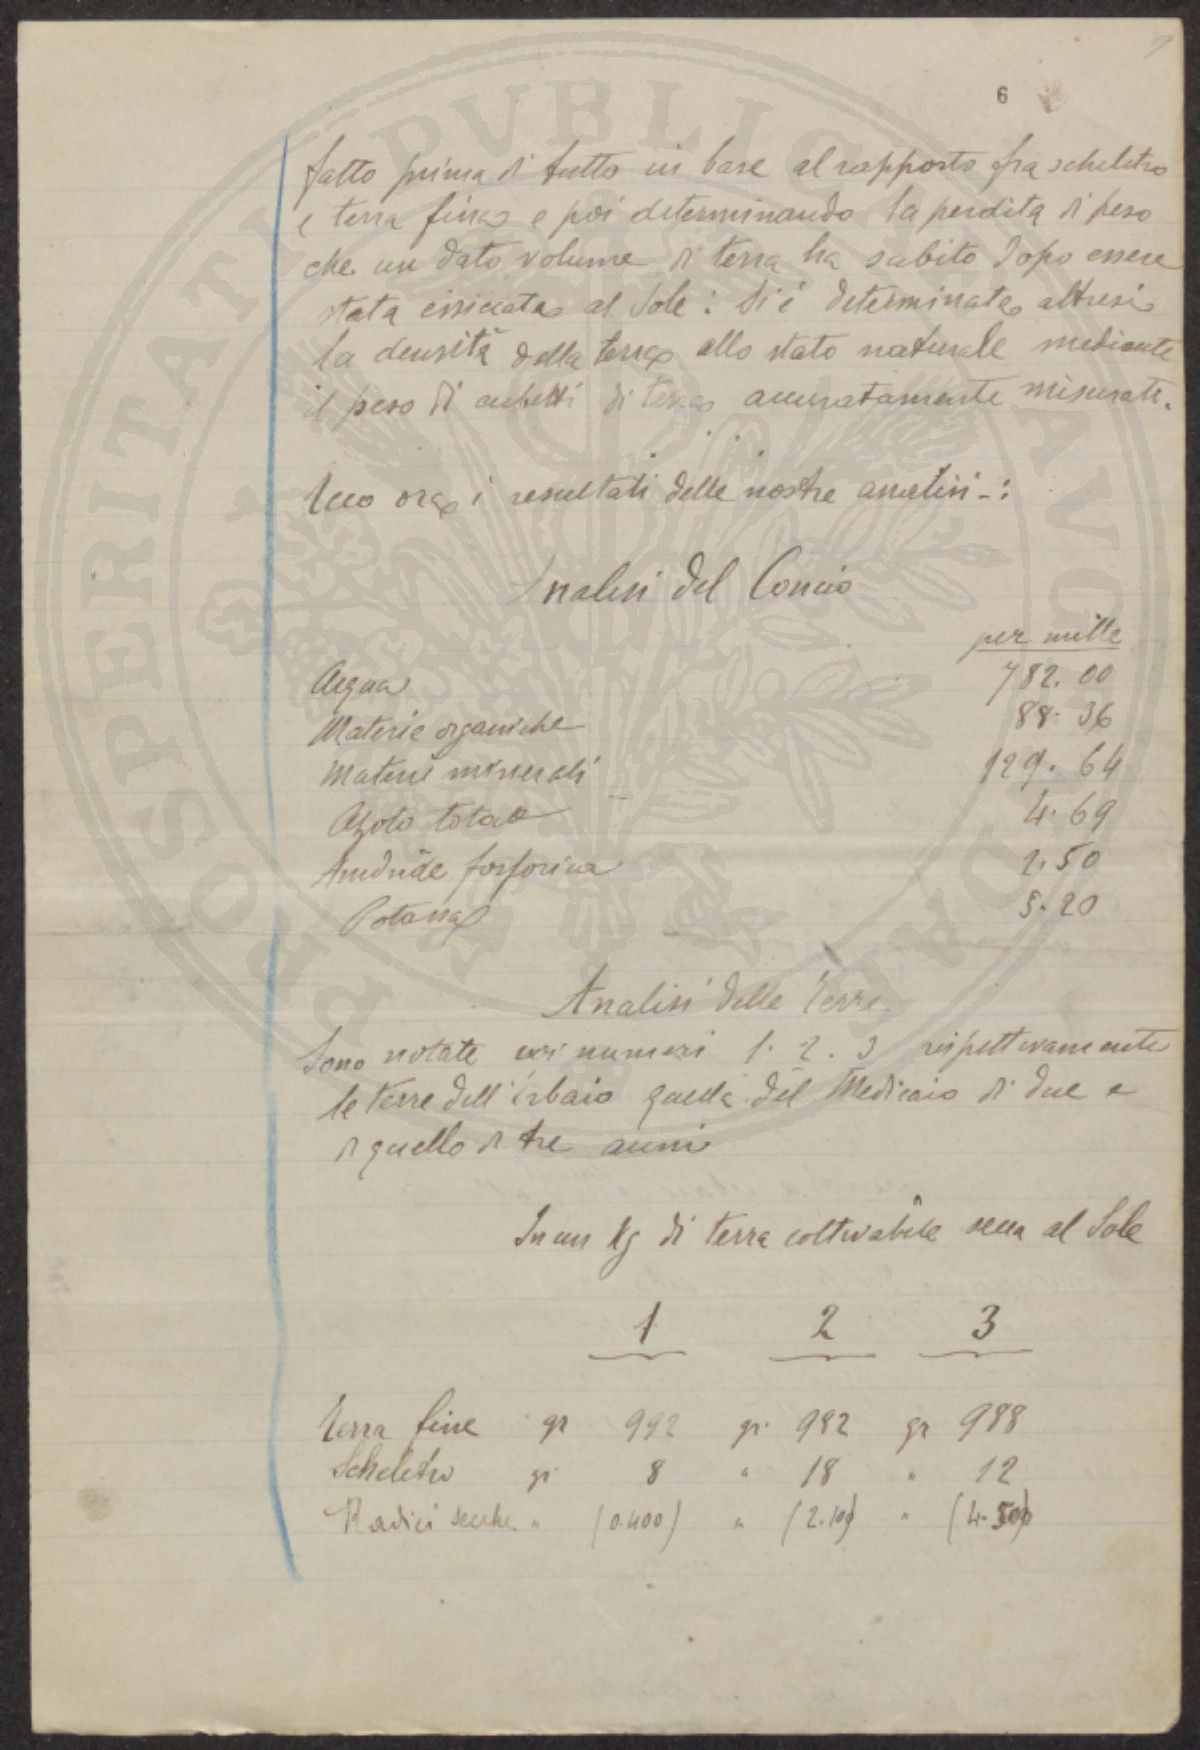 9
6
fatto prima di tutto in base al rapporto fra scheletro
e terra fina e poi determinando la perdita di peso
che un dato volume di terra ha subito dopo essere
stata essiccata al Sole : Si è determinata altresì
la densità della terra allo stato naturale mediante
il peso di cubetti di terra accuratamente misurati.
Ecco ora i resultati delle nostre analisi - :
Analisi del Concio
per mille
Acqua 782. 00
Materie organiche 88. 36
Materie minerali 129. 64
Azoto totale 4. 69
Anidride fosforica 2. 50
Potassa 5. 20
Analisi delle Terre
Sono notate coi numeri 1. 2. 3 rispettivamente
le terre dell'Erbaio quella del Medicaio di due e
di quello di tre anni
In un Kg di terra coltivabile secca al Sole
1 2 3
Terra fine gr 992 gr. 982 gr 988
Scheletro gr. 8 " 18 " 12
Radici secche " (0.400) " (2.100) " (4.500)
PROSPERITATI PVBLICAE AVGENDAE